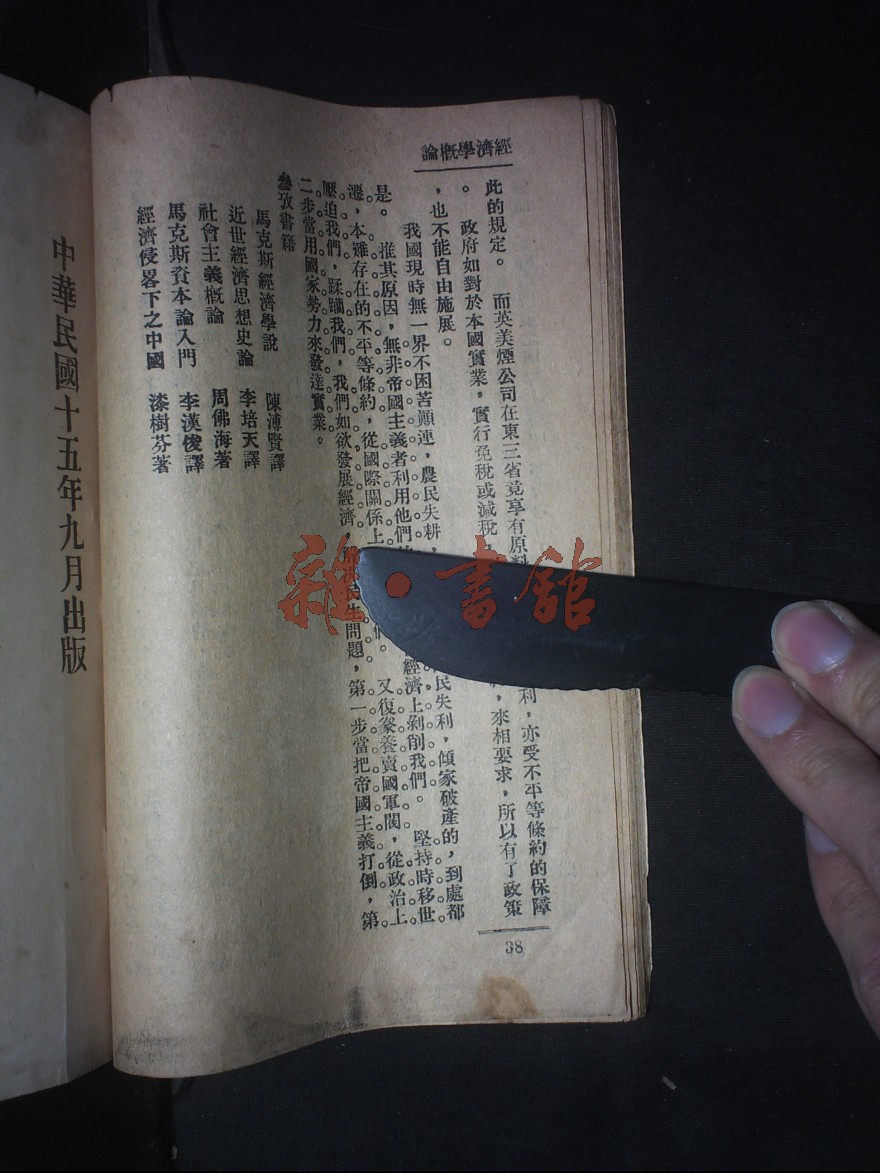 經濟學槪論
此的規定。 而英美煙公司在東三省竟享有原料利,亦受不平等條約的保障
。 政府如對於本國實業,實行免稅或減稅,來相要求,所以有了政策
,也不能自由施展。
我國現時無一界不困苦顚連,農民失耕,民失利,傾家破產的,到處都
是。 推其原因,無非帝國主義者利用他們經濟上剝削我們。 堅持時移世
遷,本難存在的不平等條約,從國際關係上們。 又復豢養賣國軍閥,從政治上
壓迫我們,蹂躪我們,我們如欲發展經濟民生問題,第一步當把帝國主義打倒,第
二步當用國家勢力來發達實業。
參攷書籍
馬克斯經濟學說 陳溥賢譯
近世經濟思想史論 李培天譯
社會主義槪論 周佛海著
馬克斯資本論入門 李漢俊譯
經濟侵畧下之中國 漆樹芬著
38
中華民國十五年九月出版
雜·書館